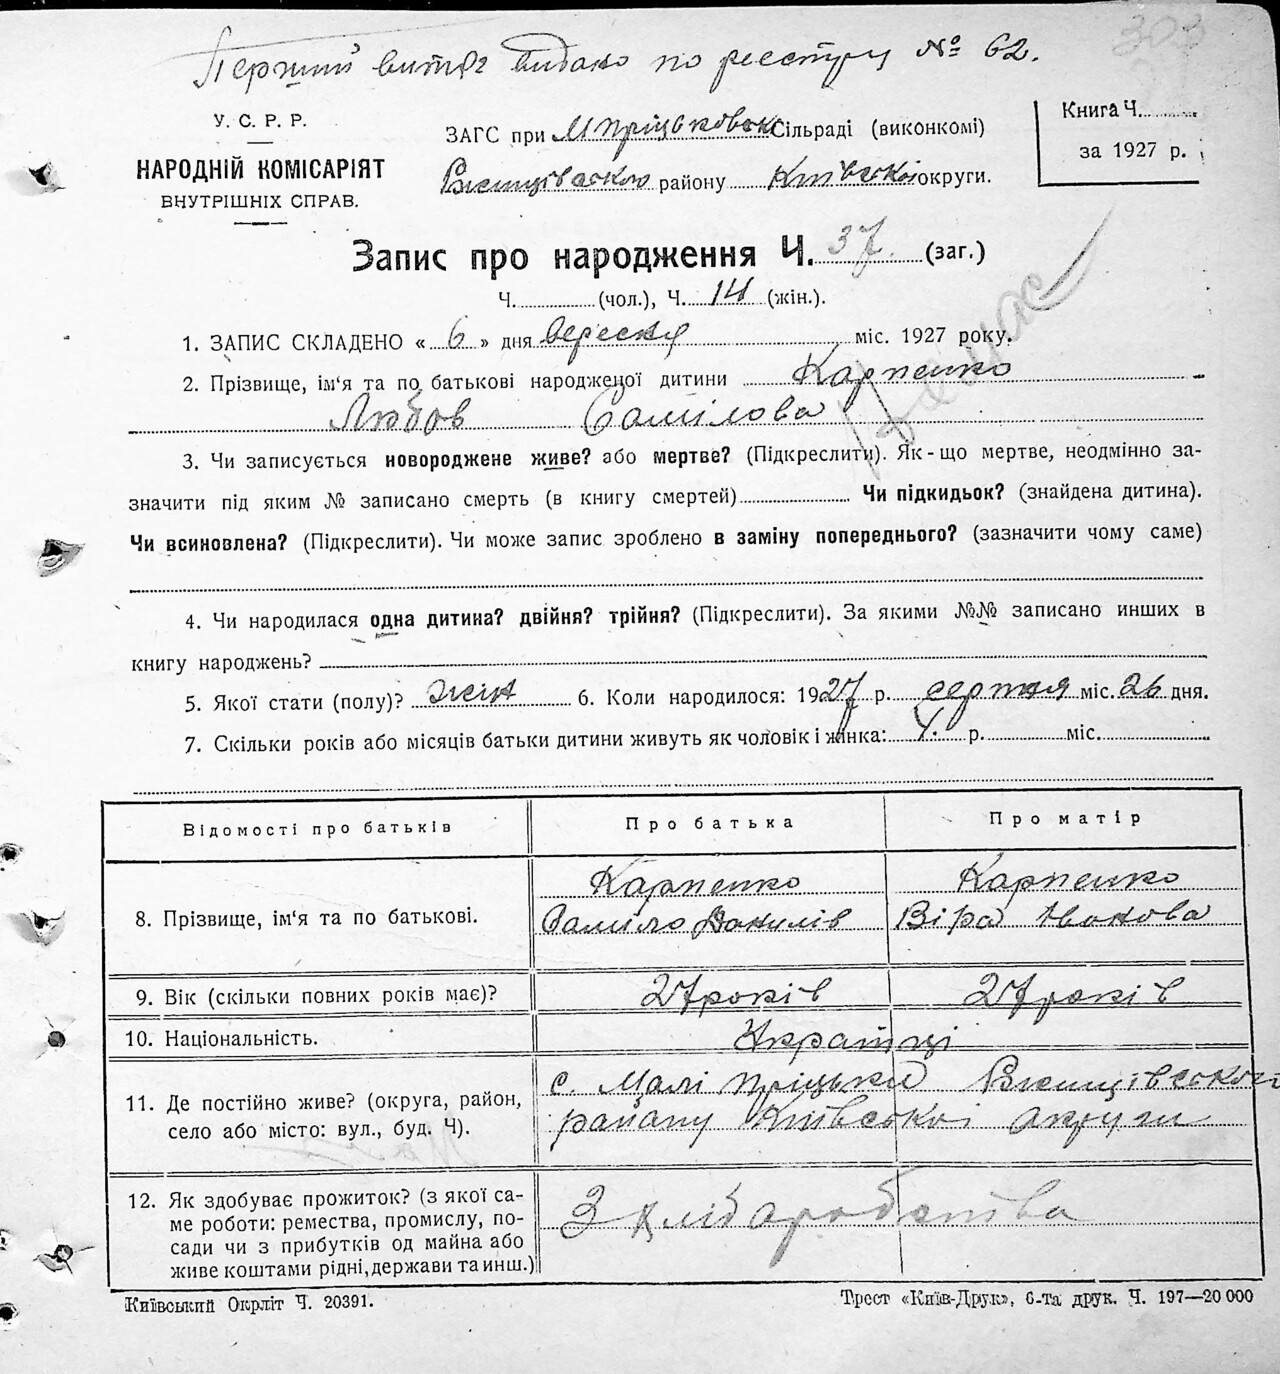 303
Перший витяг видано по реєстру № 62.
У. С. Р. Р.
НАРОДНІЙ КОМІСАРІЯТ
ВНУТРІШНІХ СПРАВ.
ЗАГС при М Пріцьковск Сільраді (виконкомі)
району Київської округи.
Книга Ч.
за 1927 р.
Запис про народження Ч. 37. (заг.)
Ч. (чол.), Ч. 14 (жін.).
1. ЗАПИС СКЛАДЕНО « 6 » дня вересня міс. 1927 року.
2. Прізвище, ім'я та по батькові народженої дитини Карпенко
Любов Самілова
3. Чи записується новороджене живе? або мертве? (Підкреслити). Як-що мертве, неодмінно за-
значити під яким № записано смерть (в книгу смертей) Чи підкидьок? (знайдена дитина).
Чи всиновлена? (Підкреслити). Чи може запис зроблено в заміну попереднього? (зазначити чому саме)
4. Чи народилася одна дитина? двійня? трійня? (Підкреслити). За якими №№ записано инших в
книгу народжень?
5. Якої стати (полу)? жін 6. Коли народилося: 1927 р. серпня міс. 26 дня.
7. Скільки років або місяців батьки дитини живуть як чоловік і жінка: р. міс.
Відомості про батьків
Про батька
Про матір
8. Прізвище, ім'я та по батькові.
Карпенко
Саміло Данилів
Карпенко
Віра Іванова
9. Вік (скільки повних років має)?
27 років
27 років
10. Національність.
Українці
11. Де постійно живе? (округа, район,
село або місто: вул., буд. Ч).
с. Малі Пріцьки
району Київської округи
12. Як здобуває прожиток? (з якої са-
ме роботи: ремества, промислу, по-
сади чи з прибутків од майна або
живе коштами рідні, держави та инш.)
З хліборобства
Київський Окрліт Ч. 20391.
Трест «Київ-Друк», 6-та друк. Ч. 197—20 000